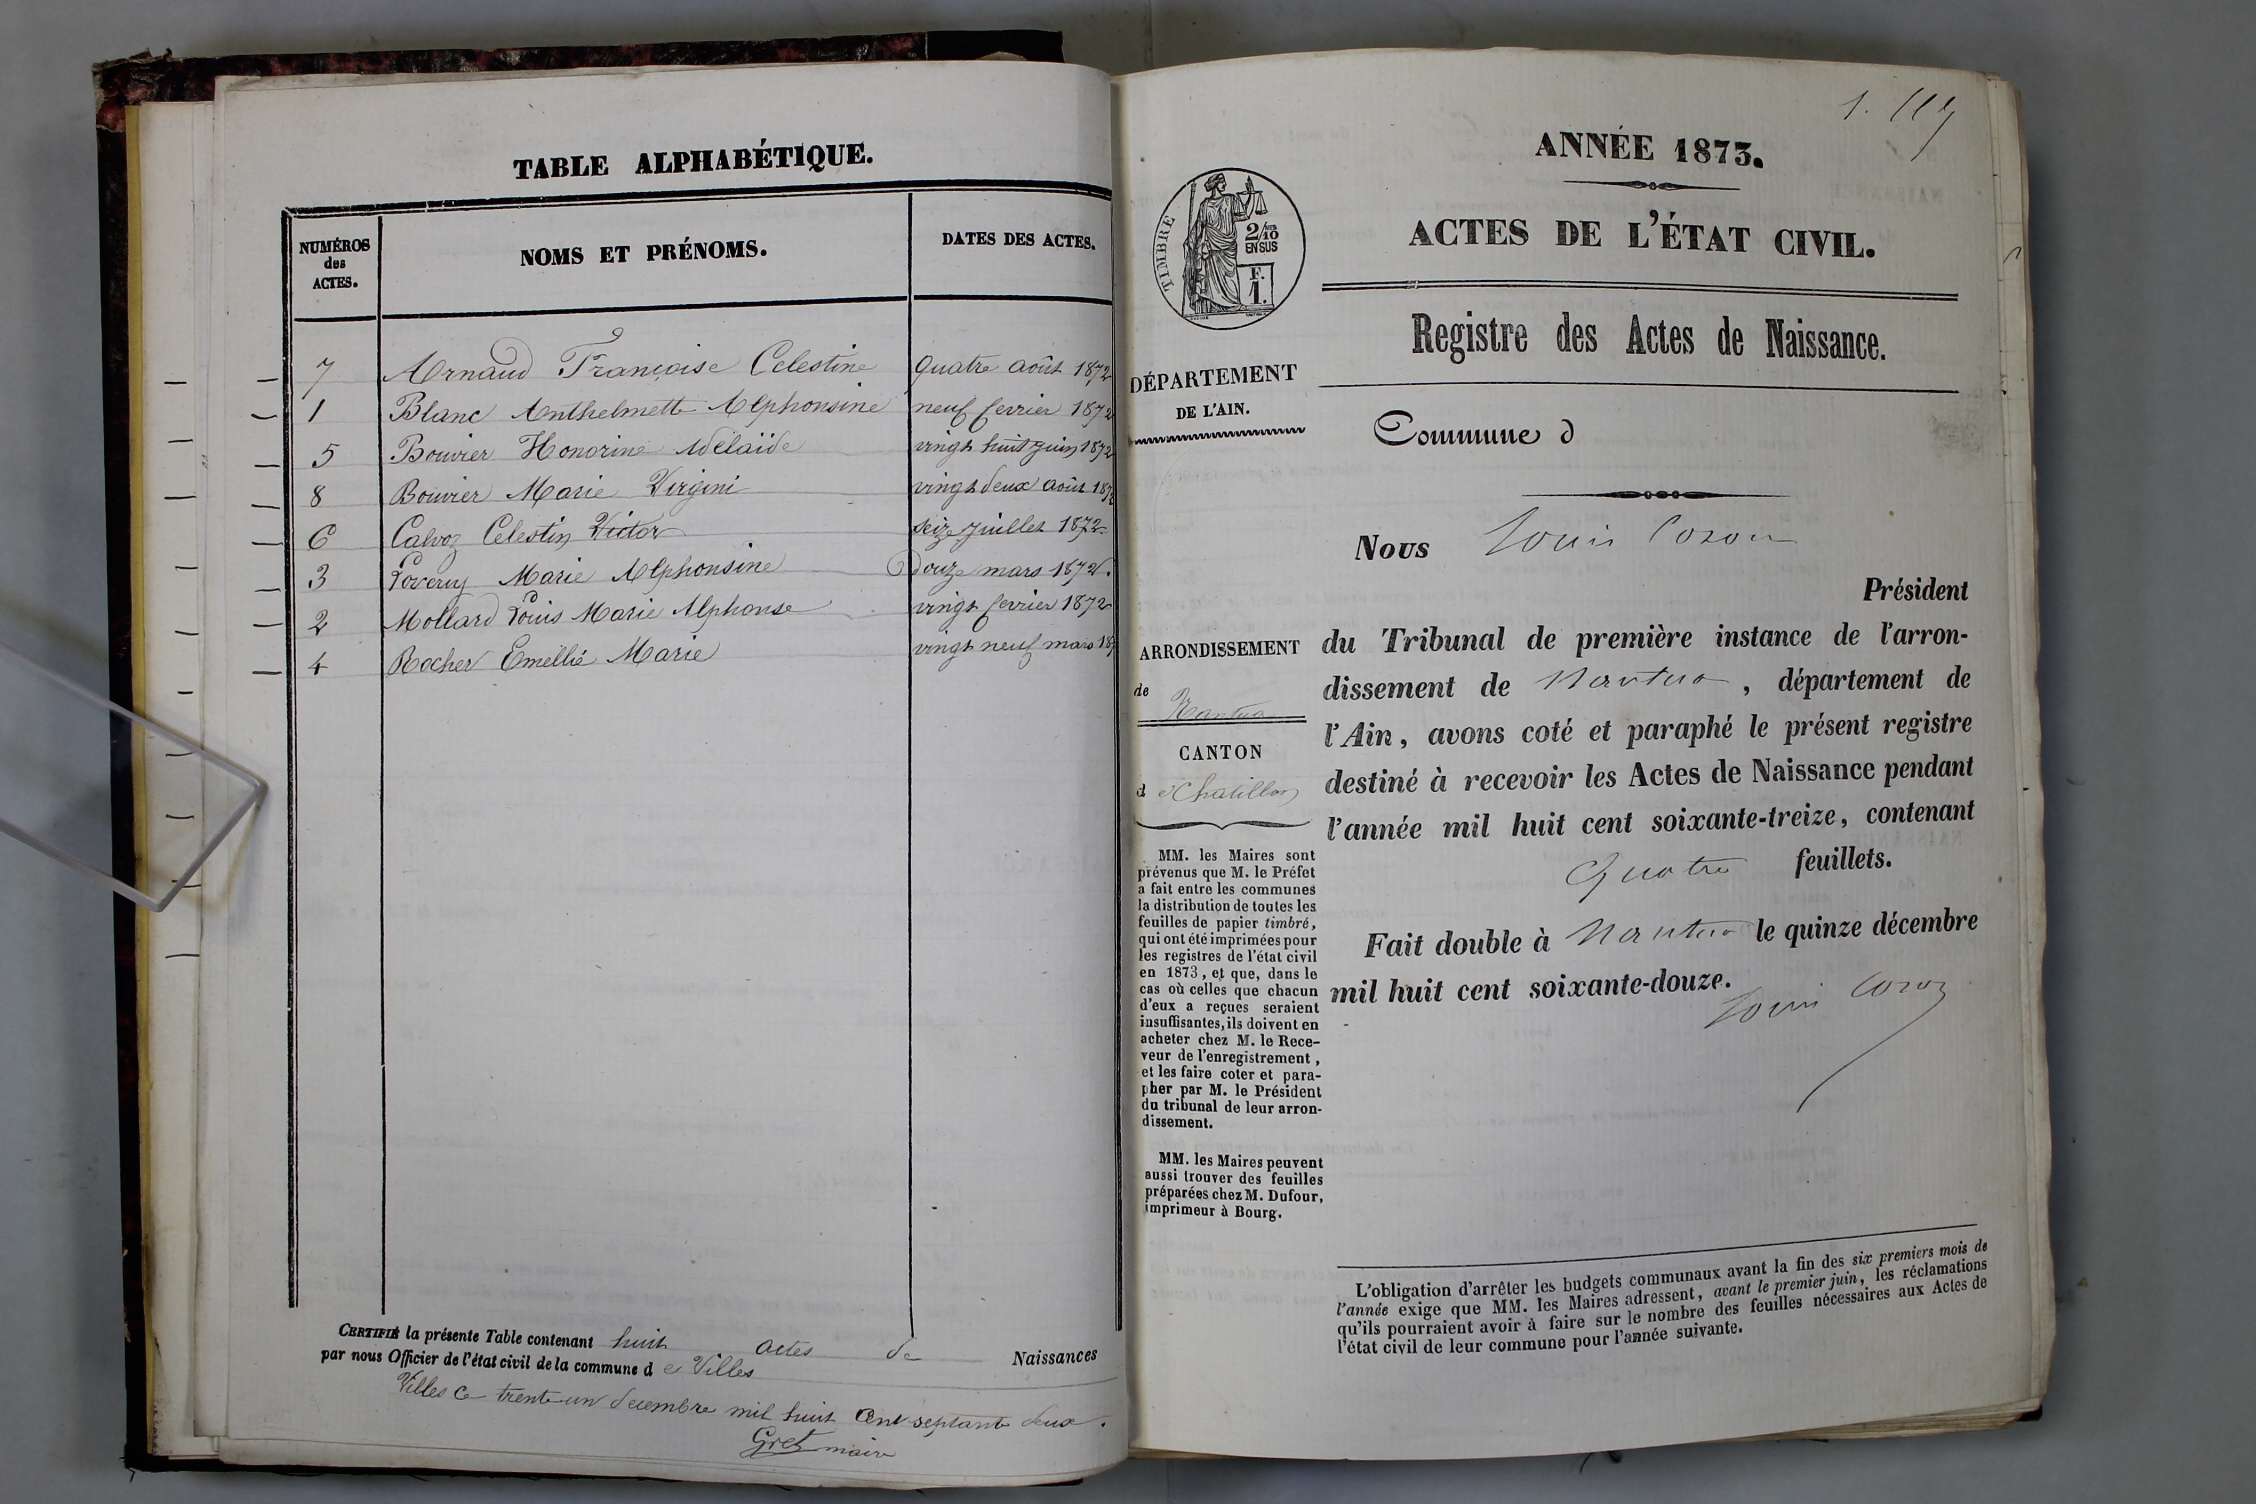 TABLE ALPHABÉTIQUE.
NUMÉROS
des
ACTES.
NOMS ET PRÉNOMS.
DATES DES ACTES.
7 Arnaud Françoise Celestine quatre août 1872
1 Blanc Anthelmette Alphonsine neuf ferrier 1872
5 Bouvier Honorine Adelaïde vingt huit juin 1872
8 Bouvier Marie Virgini vingt deux août 187
6 Calvoz Celestin Victor seize juillet 1872
3 Marie Alphonsine Douze mars 1872.
2 Mollard Louis Marie Alphonse vingt ferrier 1872
4 Rocher Emellie Marie vingt neuf mars 18
CERTIFIÉ la présente Table contenant huit actes de Naissances
par nous Officier de l'état civil de la commune d e Villes
Villes ce trente un decembre mil huit cent septante deux.
Gret maire
1.
ANNÉE 1873.
ACTES DE L'ÉTAT CIVIL.
Registre des Actes de Naissance.
TIMBRE
2/10
EN SUS
F.
1.
DÉPARTEMENT
DE L'AIN.
ARRONDISSEMENT
de
Nantua
CANTON
d e Chatillon
MM. les Maires sont
prévenus que M. le Préfet
a fait entre les communes
la distribution de toutes les
feuilles de papier timbré,
qui ont été imprimées pour
les registres de l'état civil
en 1873, et que, dans le
cas où celles que chacun
d'eux a reçues seraient
insuffisantes, ils doivent en
acheter chez M. le Rece-
veur de l'enregistrement,
et les faire coter et para-
pher par M. le Président
du tribunal de leur arron-
dissement.
MM. les Maires peuvent
aussi trouver des feuilles
préparées chez M. Dufour,
imprimeur à Bourg.
Commune d
Nous Louis Cozon
Président
du Tribunal de première instance de l'arron-
dissement de Nantua, département de
l'Ain, avons coté et paraphé le présent registre
destiné à recevoir les Actes de Naissance pendant
l'année mil huit cent soixante-treize, contenant
quatre feuillets.
Fait double à Nantua le quinze décembre
mil huit cent soixante-douze.
Louis Cozon
L'obligation d'arrêter les budgets communaux avant la fin des six premiers mois de
l'année exige que MM. les Maires adressent, avant le premier juin, les réclamations
qu'ils pourraient avoir à faire sur le nombre des feuilles nécessaires aux Actes de
l'état civil de leur commune pour l'année suivante.